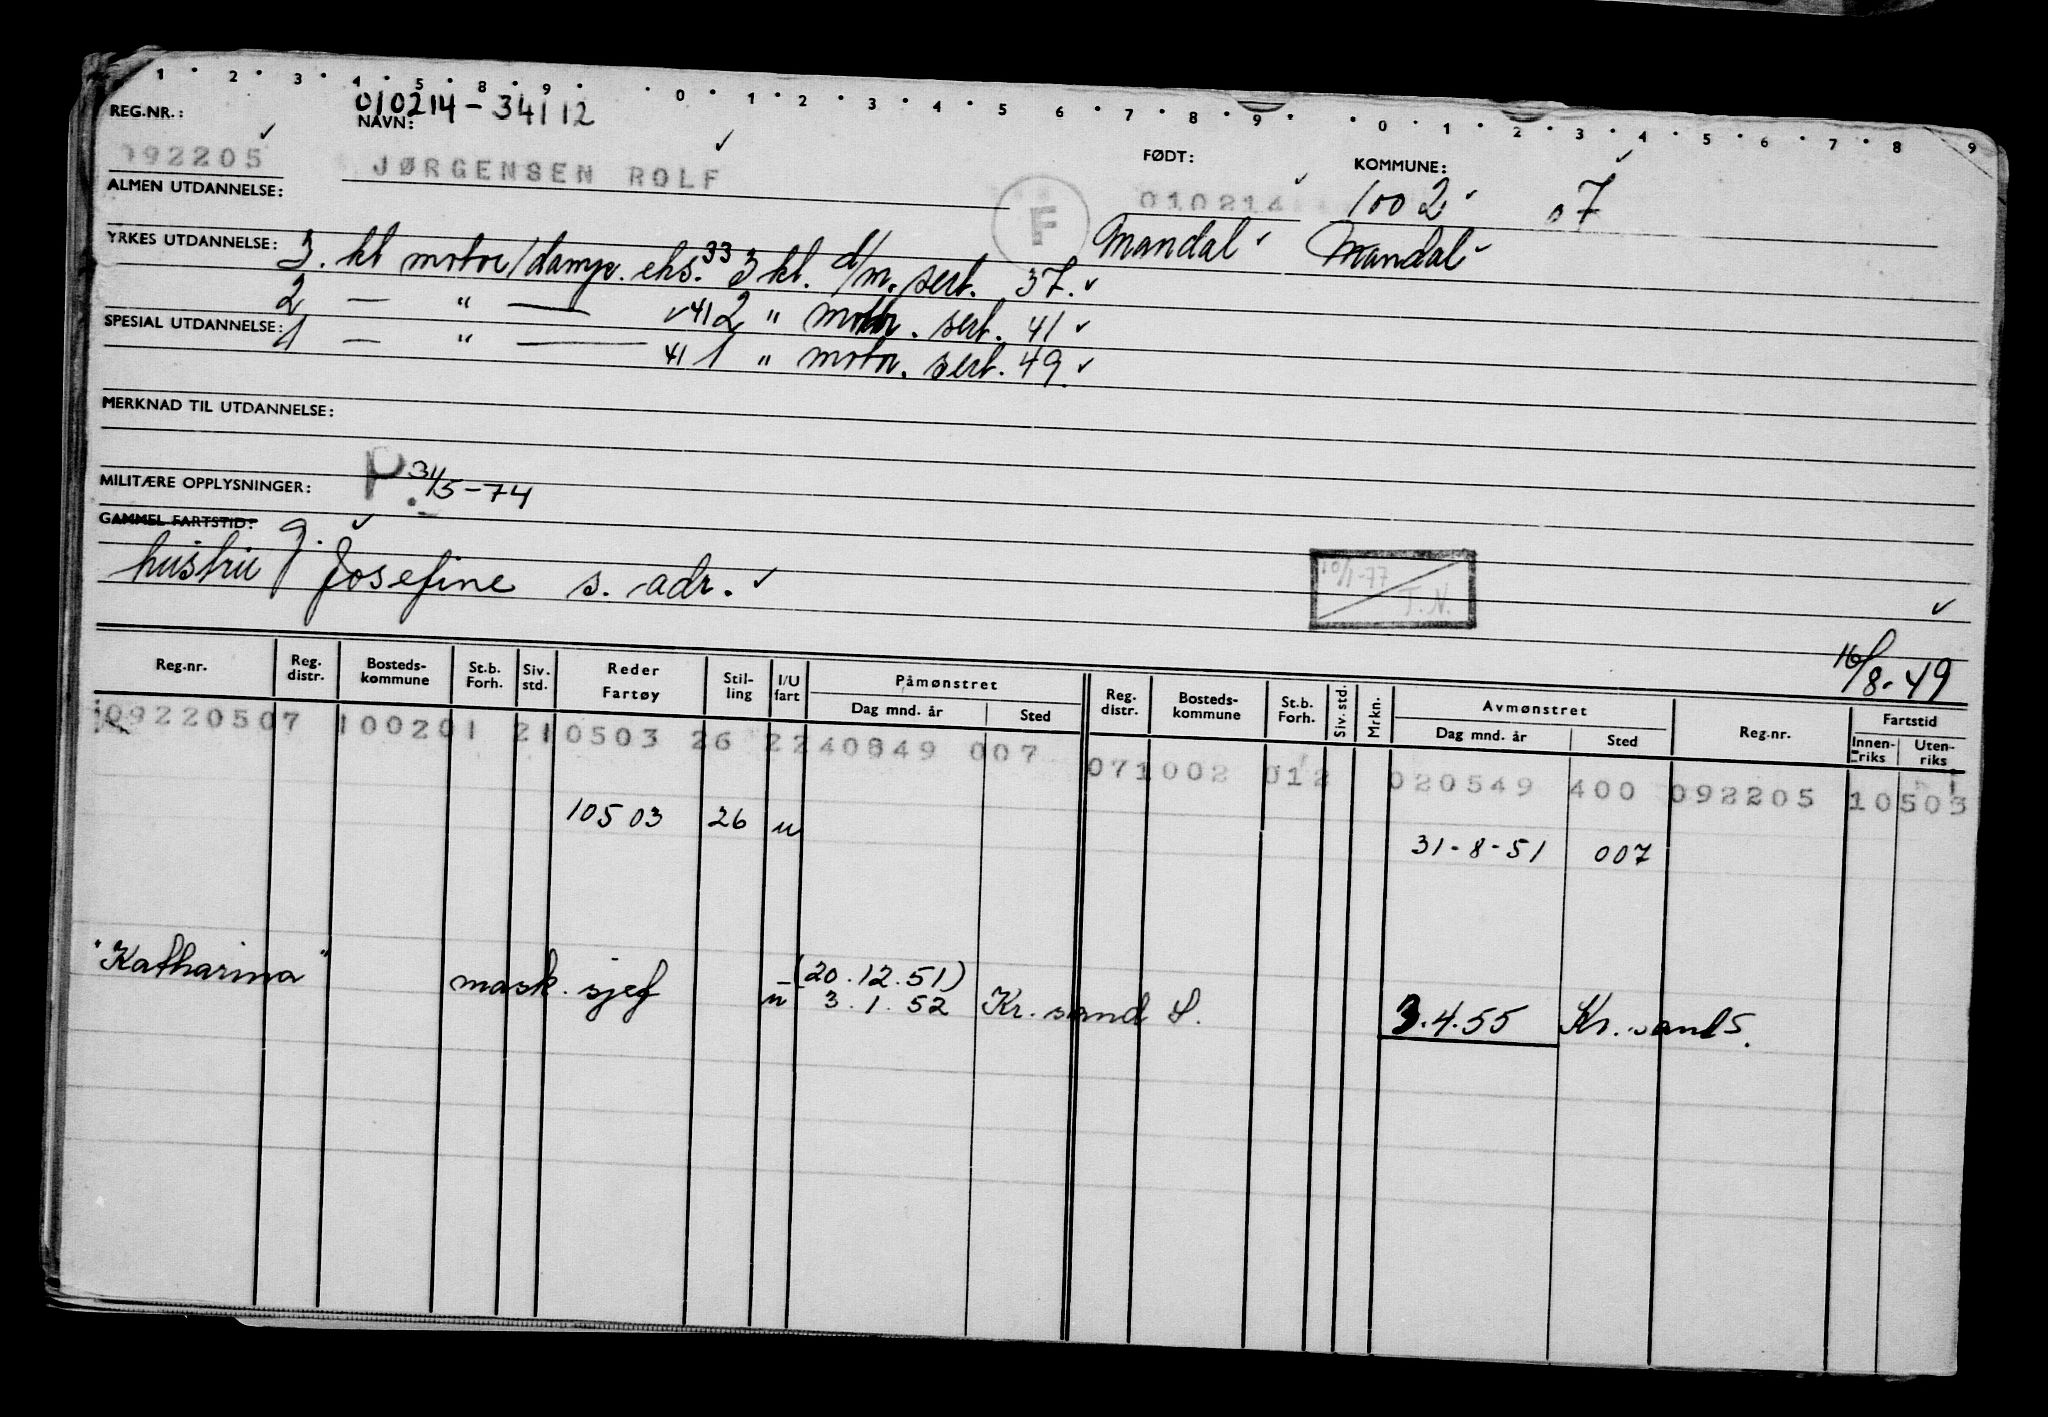 1 · 2 · 3 · 4 · 5 · 8 · 9 · · 0 · 1 · 2 · 3 · 4 · 5 6 · 7 · 8 · 9 · · 0 · 1 · 2 · 3 · 4 · 5 · 6 · 7 · 8 · 9
REG.NR.: 010214-34112
NAVN: FØDT: KOMMUNE:
092205 JØRGENSEN ROLF F 010214 1002 07
ALMEN UTDANNELSE: Mandal Mandal
YRKES UTDANNELSE: 3. kl motor/damp. eks. 33 3 kl. d/m. sert. 37.
2 — " — 41 2 " motor. sert. 41
SPESIAL UTDANNELSE: 1 — " — 41 1 " motor. sert. 49
MERKNAD TIL UTDANNELSE:
MILITÆRE OPPLYSNINGER: P. 31/5-74
GAMMEL FARTSTID: g.
hustru Josefine s. adr.
10/1-77
T.N.
16/8-49
Reg.nr. Reg. distr. Bosteds-kommune St.b. Forh. Siv. std. Reder Fartøy Stil-ling I/U fart Påmønstret Dag mnd. år Sted Reg. distr. Bosteds-kommune St.b. Forh. Siv. std. Mrkn. Avmønstret Dag mnd. år Sted Reg.nr. Fartstid Innen-riks Uten-riks
09220507 100201 210503 26 2240849 007 071002 012 020549 400 092205 10503
10503 26 u 31-8-51 007
"Katharina" mask. sjef u (20.12.51)
3.1.52 Kr. sand S. 3.4.55 Kr. sand S.